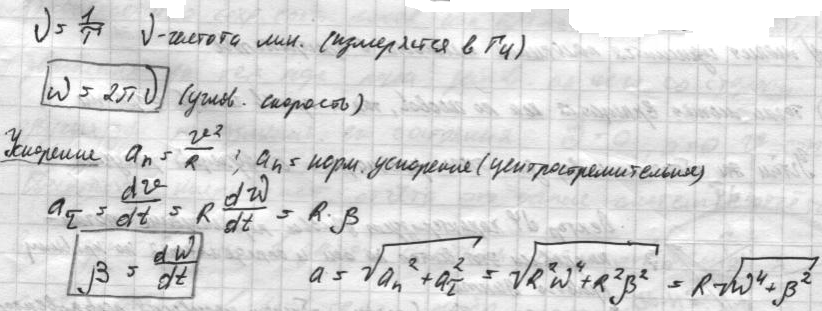 ν = 1/T ν - частота лин. (измеряется в Гц)
ω = 2πν (углов. скорость)
Ускорение aₙ = v²/R ; aₙ = норм. ускорение (центростремительная)
a_τ = dv/dt = R dω/dt = R·β
β = dω/dt a = √(aₙ² + a_τ²) = √(R²ω⁴ + R²β²) = R√(ω⁴ + β²)